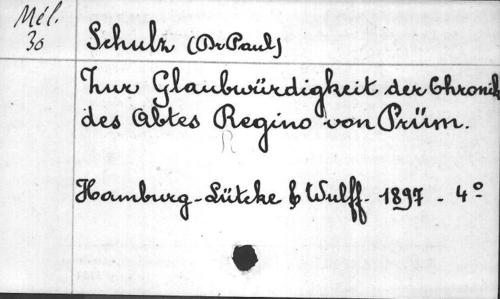 Mél.
30
Schulz (Dr Paul)
Zur Glaubwürdigkeit der Chronik
des Abtes Regino von Prüm.
R
Hamburg - Lütcke & Wulff - 1897 - 4°